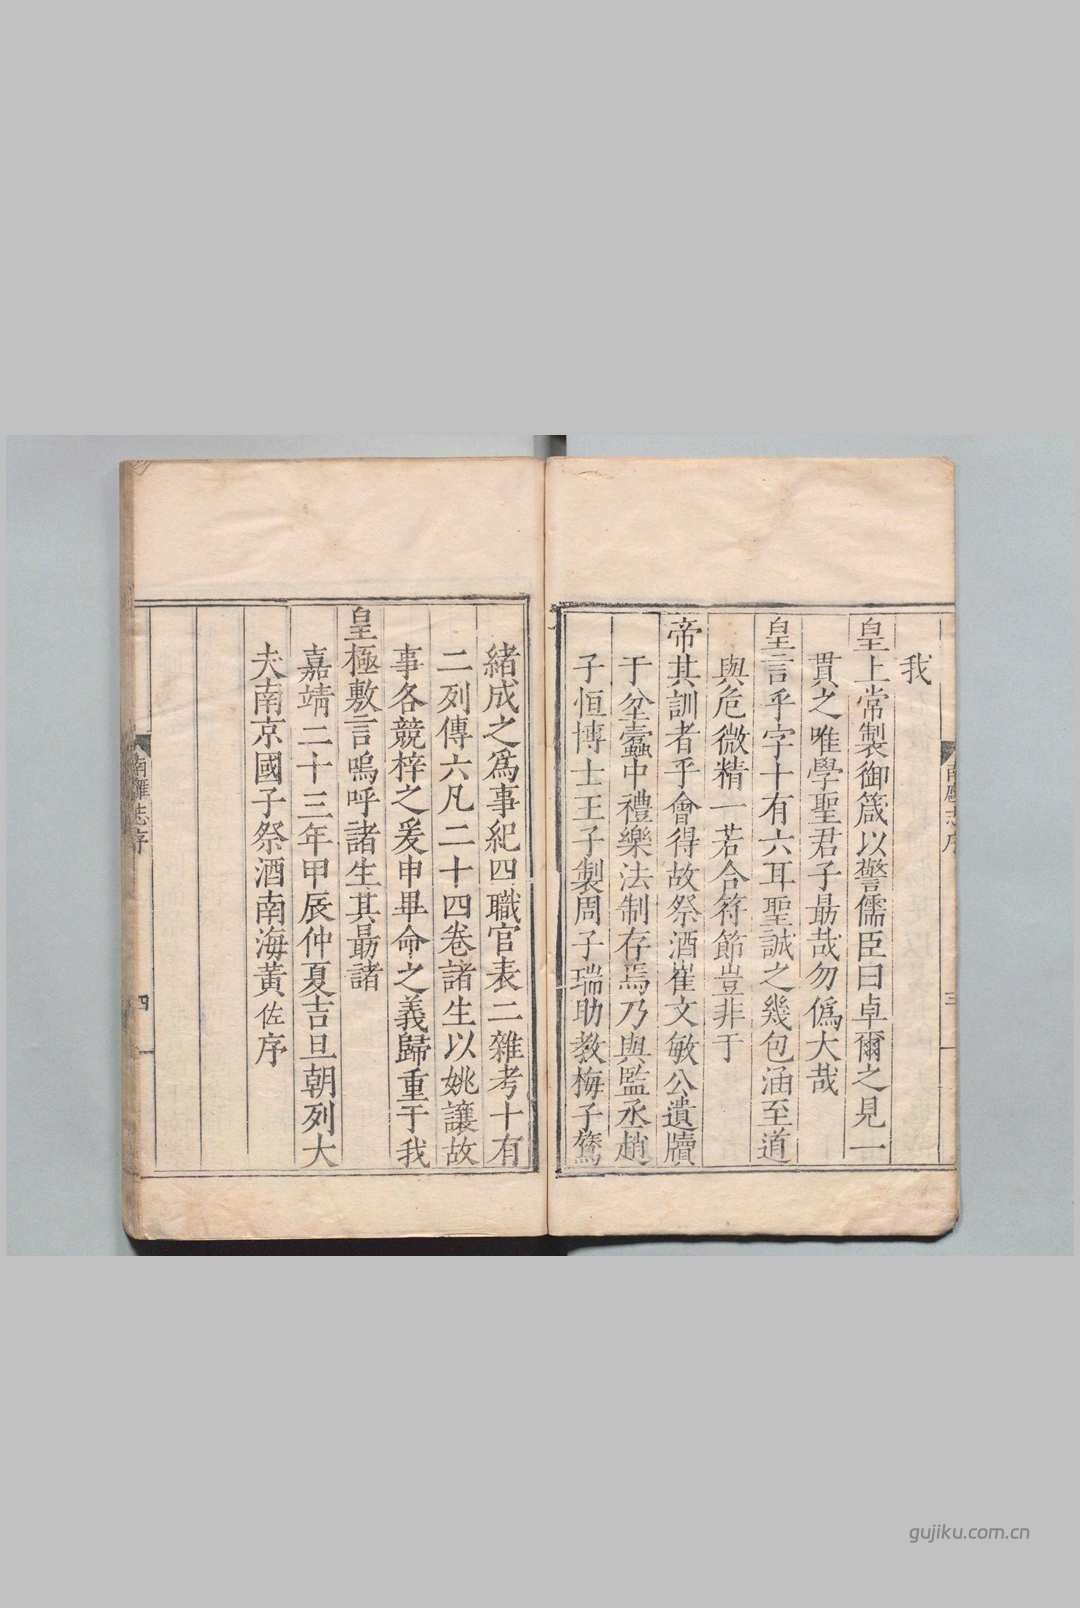 我
皇上常製御箴以警儒臣曰卓爾之見一
貫之唯學聖君子勗哉勿僞大哉
皇言乎字十有六耳聖誠之幾包涵至道
與危微精一若合符節豈非于
帝其訓者乎會得故祭酒崔文敏公遺牘
于坌蠹中禮樂法制存焉乃與監丞趙
子恒博士王子製周子瑞助教梅子鷟
南廱志序
三
緒成之爲事紀四職官表二雜考十有
二列傳六凡二十四卷諸生以姚讓故
事各競梓之爰申畢命之義歸重于我
皇極敷言嗚呼諸生其勗諸
嘉靖二十三年甲辰仲夏吉旦朝列大
夫南京國子祭酒南海黃佐序
南雝志序
四
gujiku.com.cn